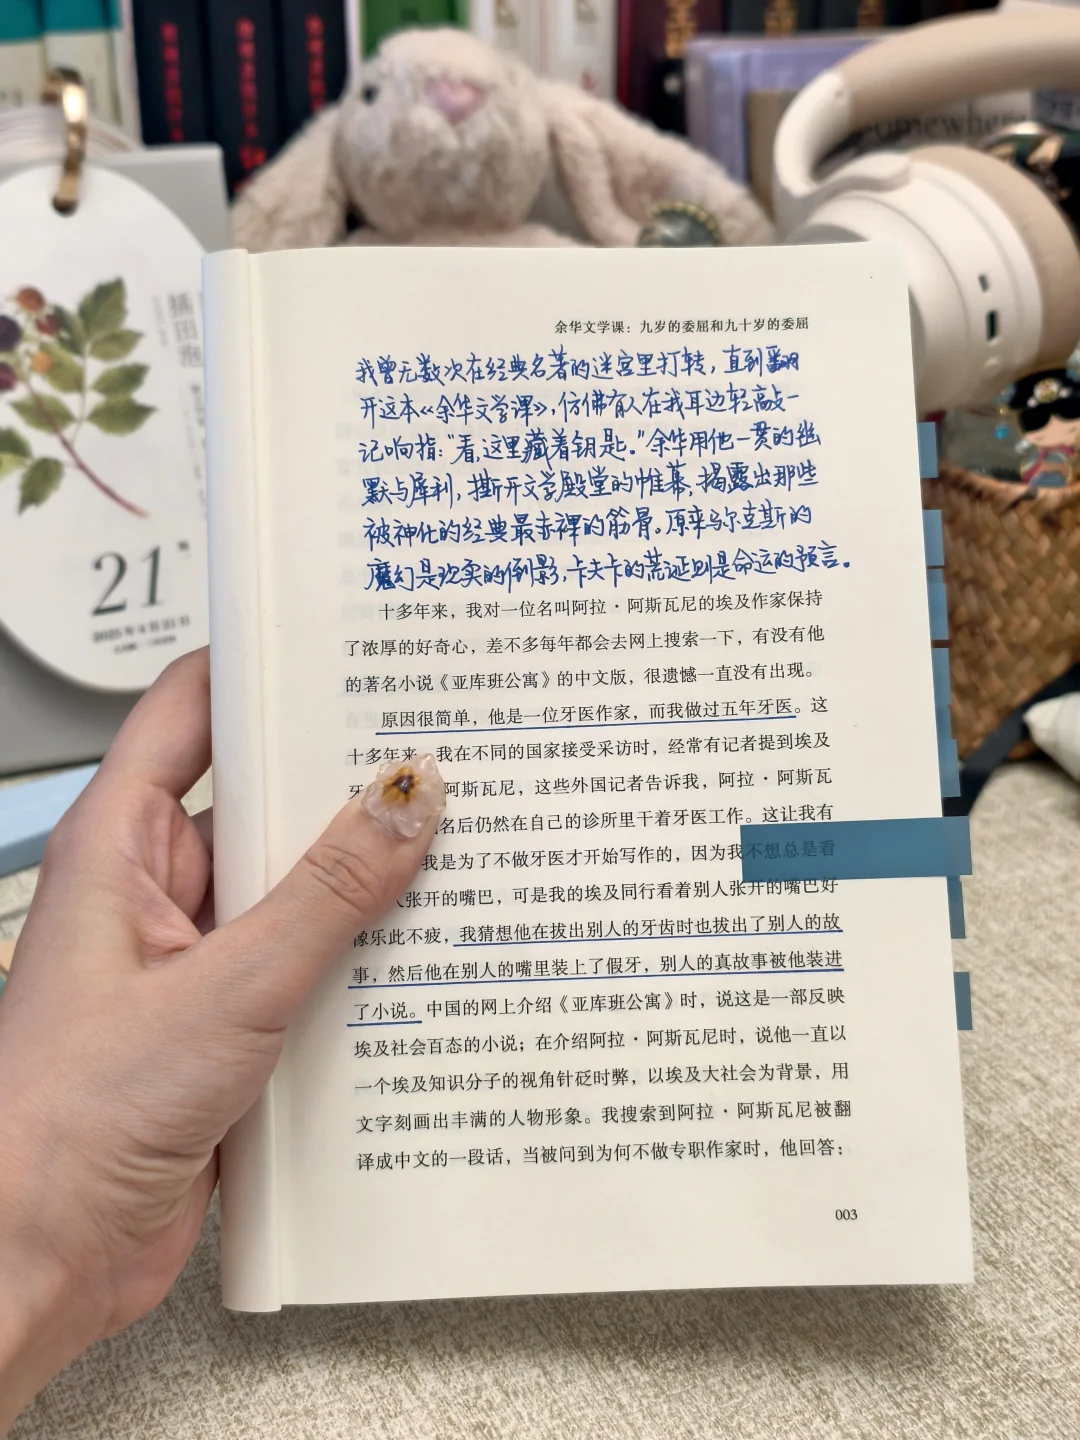 omewher
插田泡
21
2025年4月21日
余华文学课：九岁的委屈和九十岁的委屈
我曾无数次在经典名著的迷宫里打转，直到翻
开这本《余华文学课》，仿佛有人在我耳边轻敲一
记响指：“看，这里藏着钥匙。”余华用他一贯的幽
默与犀利，撕开文学殿堂的帷幕，揭露出那些
被神化的经典最赤裸的筋骨。原来马尔克斯的
魔幻是现实的倒影，卡夫卡的荒诞则是命运的预言。
十多年来，我对一位名叫阿拉·阿斯瓦尼的埃及作家保持
了浓厚的好奇心，差不多每年都会去网上搜索一下，有没有他
的著名小说《亚库班公寓》的中文版，很遗憾一直没有出现。
原因很简单，他是一位牙医作家，而我做过五年牙医。这
十多年来，我在不同的国家接受采访时，经常有记者提到埃及
牙 阿斯瓦尼，这些外国记者告诉我，阿拉·阿斯瓦
名后仍然在自己的诊所里干着牙医工作。这让我有
我是为了不做牙医才开始写作的，因为我不想总是看
人张开的嘴巴，可是我的埃及同行看着别人张开的嘴巴好
像乐此不疲，我猜想他在拔出别人的牙齿时也拔出了别人的故
事，然后他在别人的嘴里装上了假牙，别人的真故事被他装进
了小说。中国的网上介绍《亚库班公寓》时，说这是一部反映
埃及社会百态的小说；在介绍阿拉·阿斯瓦尼时，说他一直以
一个埃及知识分子的视角针砭时弊，以埃及大社会为背景，用
文字刻画出丰满的人物形象。我搜索到阿拉·阿斯瓦尼被翻
译成中文的一段话，当被问到为何不做专职作家时，他回答：
003